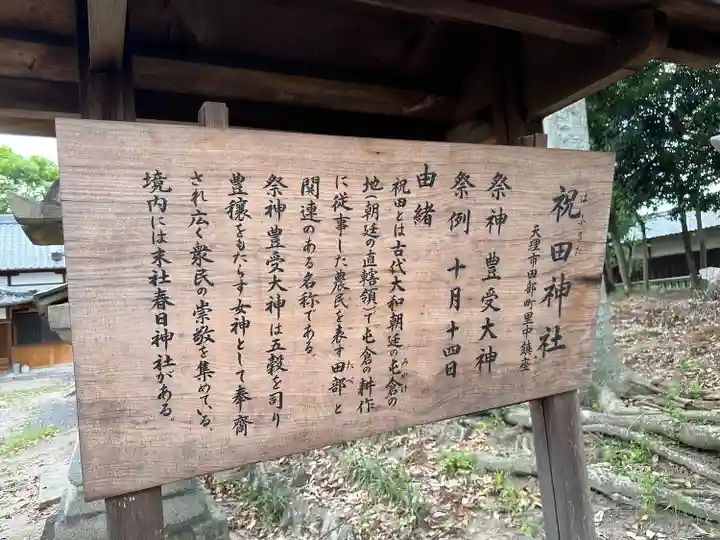 祝田神社
はふりた
天理市田部町里中鎮座
祭神 豊受大神
祭例 十月十四日
由緒
祝田とは古代大和朝廷の屯倉の
みやけ
地(朝廷の直轄領)で屯倉の耕作
に従事した農民を表す田部と
た
関連のある名称である。
祭神 豊受大神は五穀を司り
豊穣をもたらす女神として奉齋
され広く衆民の崇敬を集めている。
境内には末社春日神社がある。